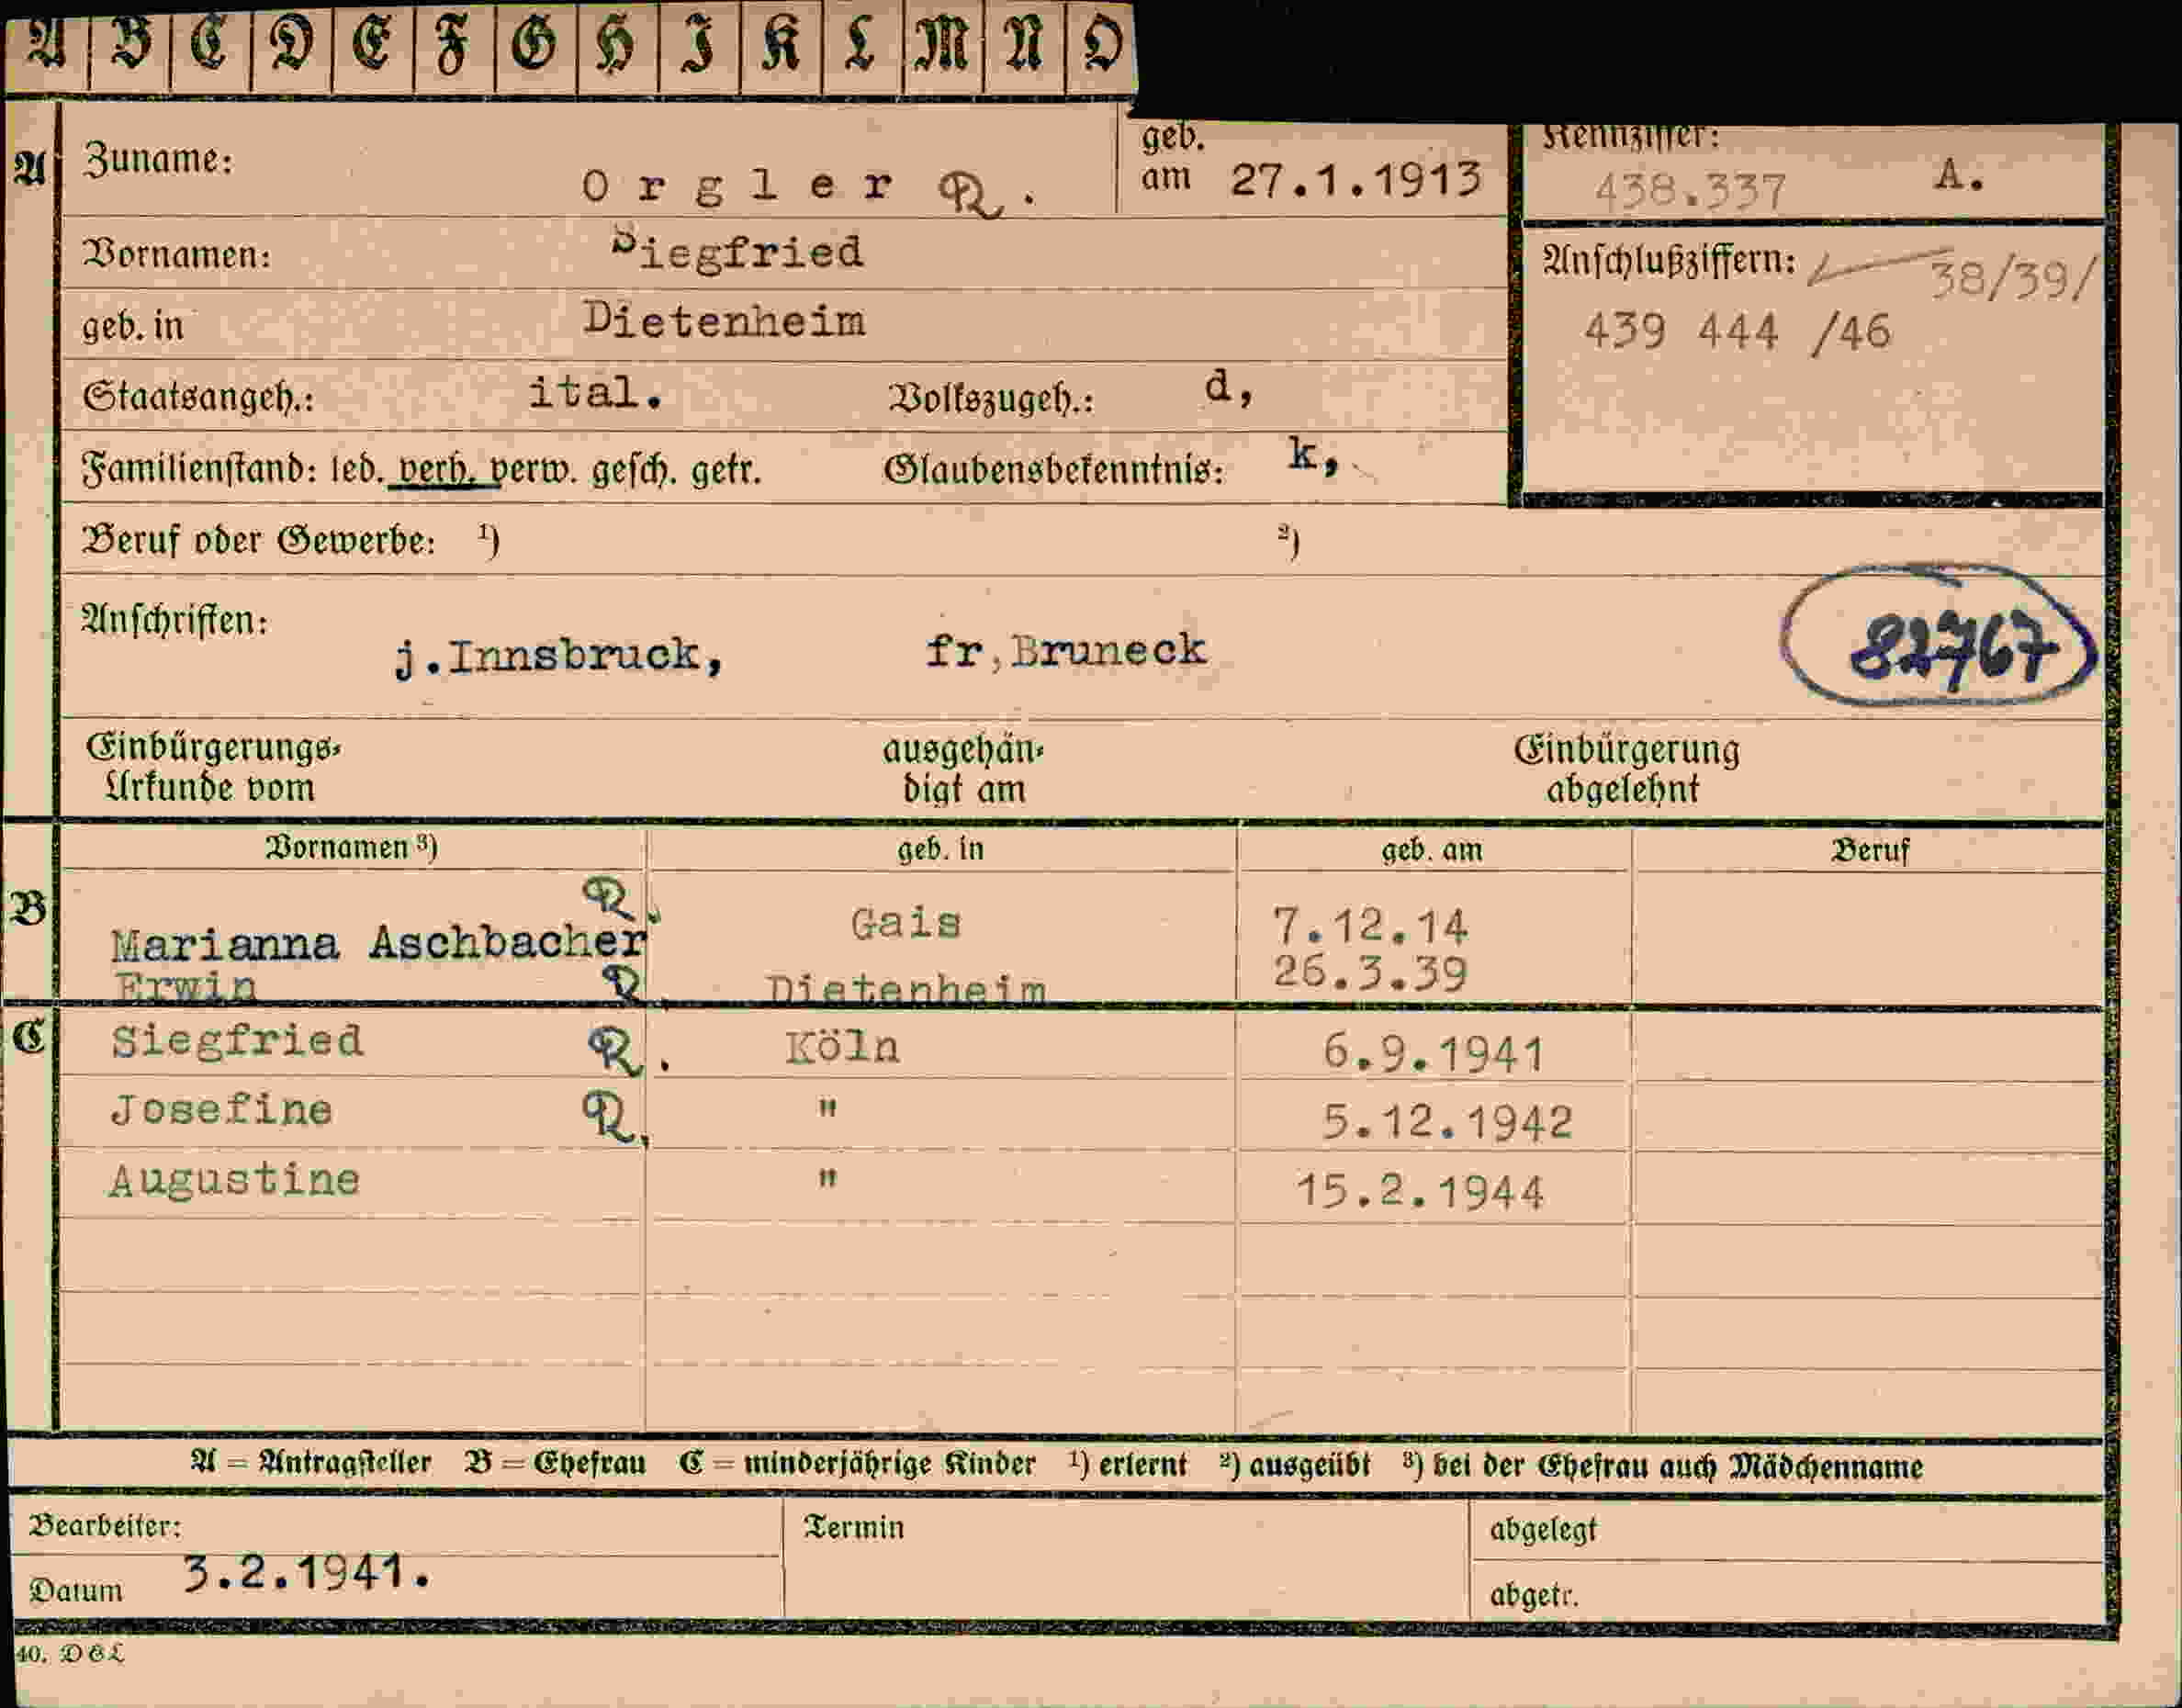 A B C D E F G H I K L M N O
A Zuname: Orgler R. geb. am 27.1.1913 Kennziffer: 438.337 A.
Vornamen: Siegfried Anschlußziffern: 38/39/
geb. in Dietenheim 439 444 /46
Staatsangeh.: ital. Volkszugeh.: d,
Familienstand: led. verh. verw. gesch. getr. Glaubensbekenntnis: k,
Beruf oder Gewerbe: 1) 2)
Anschriften: j.Innsbruck, fr,Bruneck 82767
Einbürgerungs-Urkunde vom ausgehändigt am Einbürgerung abgelehnt
Vornamen 3) geb. in geb. am Beruf
B Marianna Aschbacher R. Gais 7.12.14
Erwin R. Dietenheim 26.3.39
C Siegfried R. Köln 6.9.1941
Josefine R. " 5.12.1942
Augustine " 15.2.1944
A = Antragsteller B = Ehefrau C = minderjährige Kinder 1) erlernt 2) ausgeübt 3) bei der Ehefrau auch Mädchenname
Bearbeiter: Termin abgelegt
Datum 3.2.1941. abgetr.
40. D&L